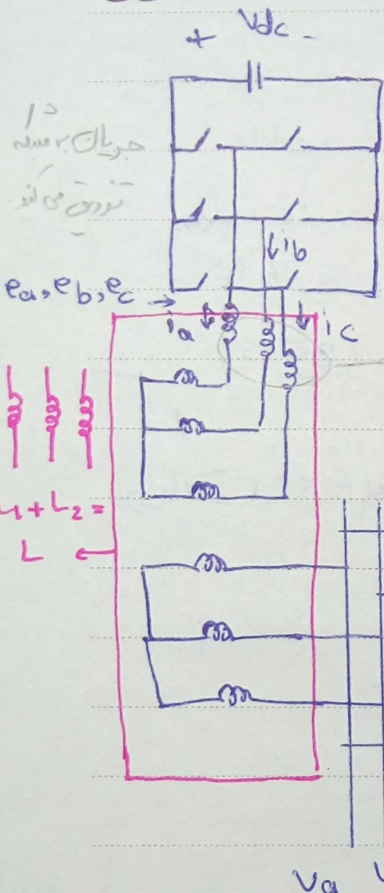 + Vdc -
جریان به شبکه
تزریق می کند
ib
ea, eb, ec →
ia
ic
L1 + L2 =
L ←
Va